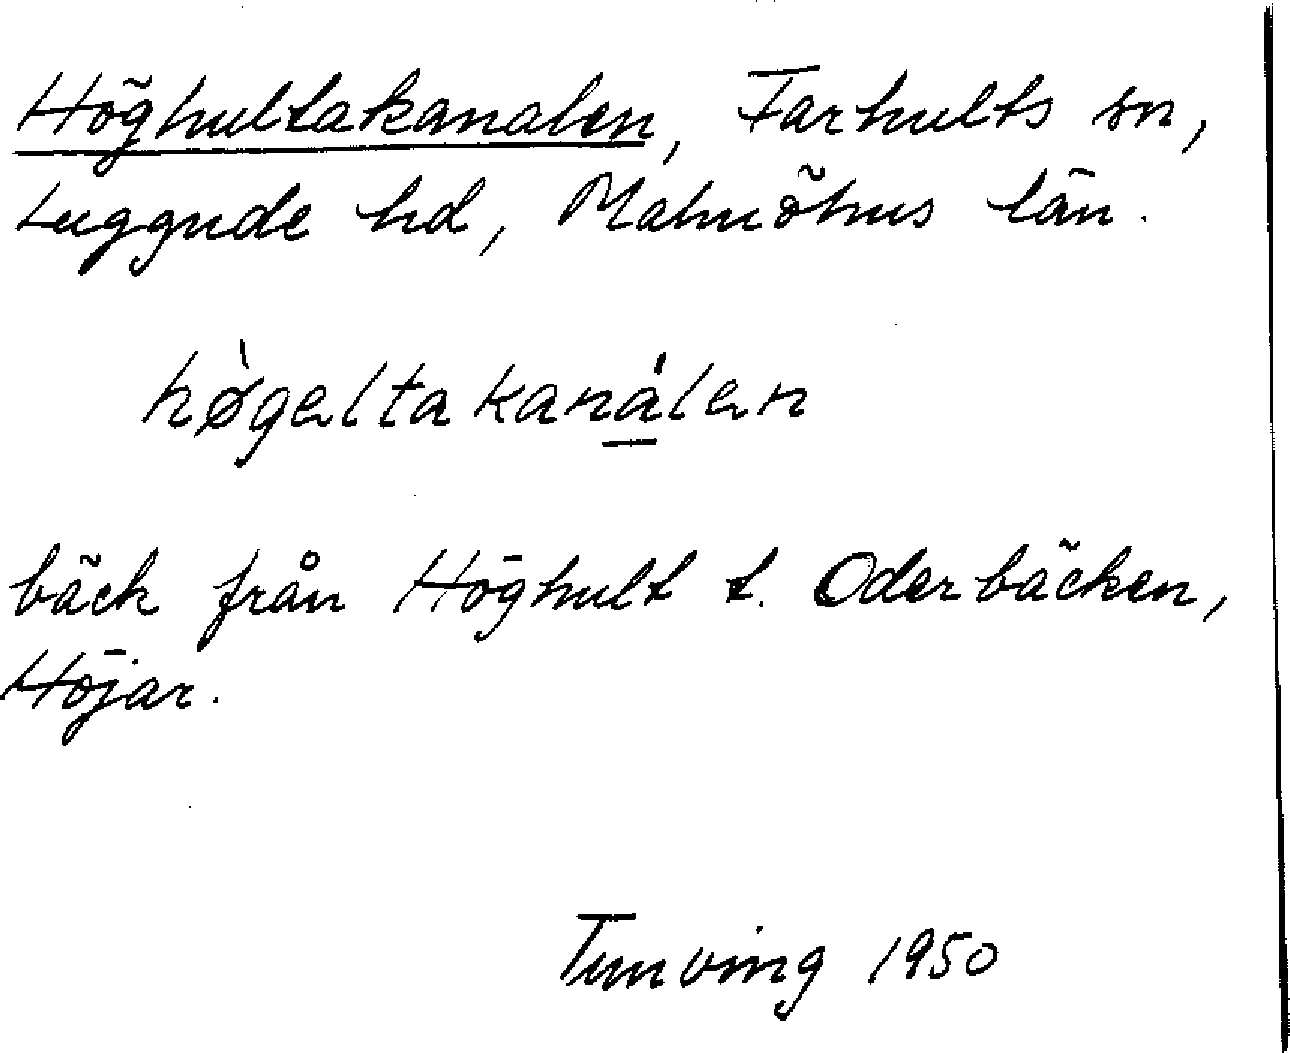 Höghultakanalen, Farhults sn,
Luggude hd, Malmöhus län.
hø̀geltakanálen
bäck från Höghult t. Oderbäcken,
Höjar.
Tunving 1950